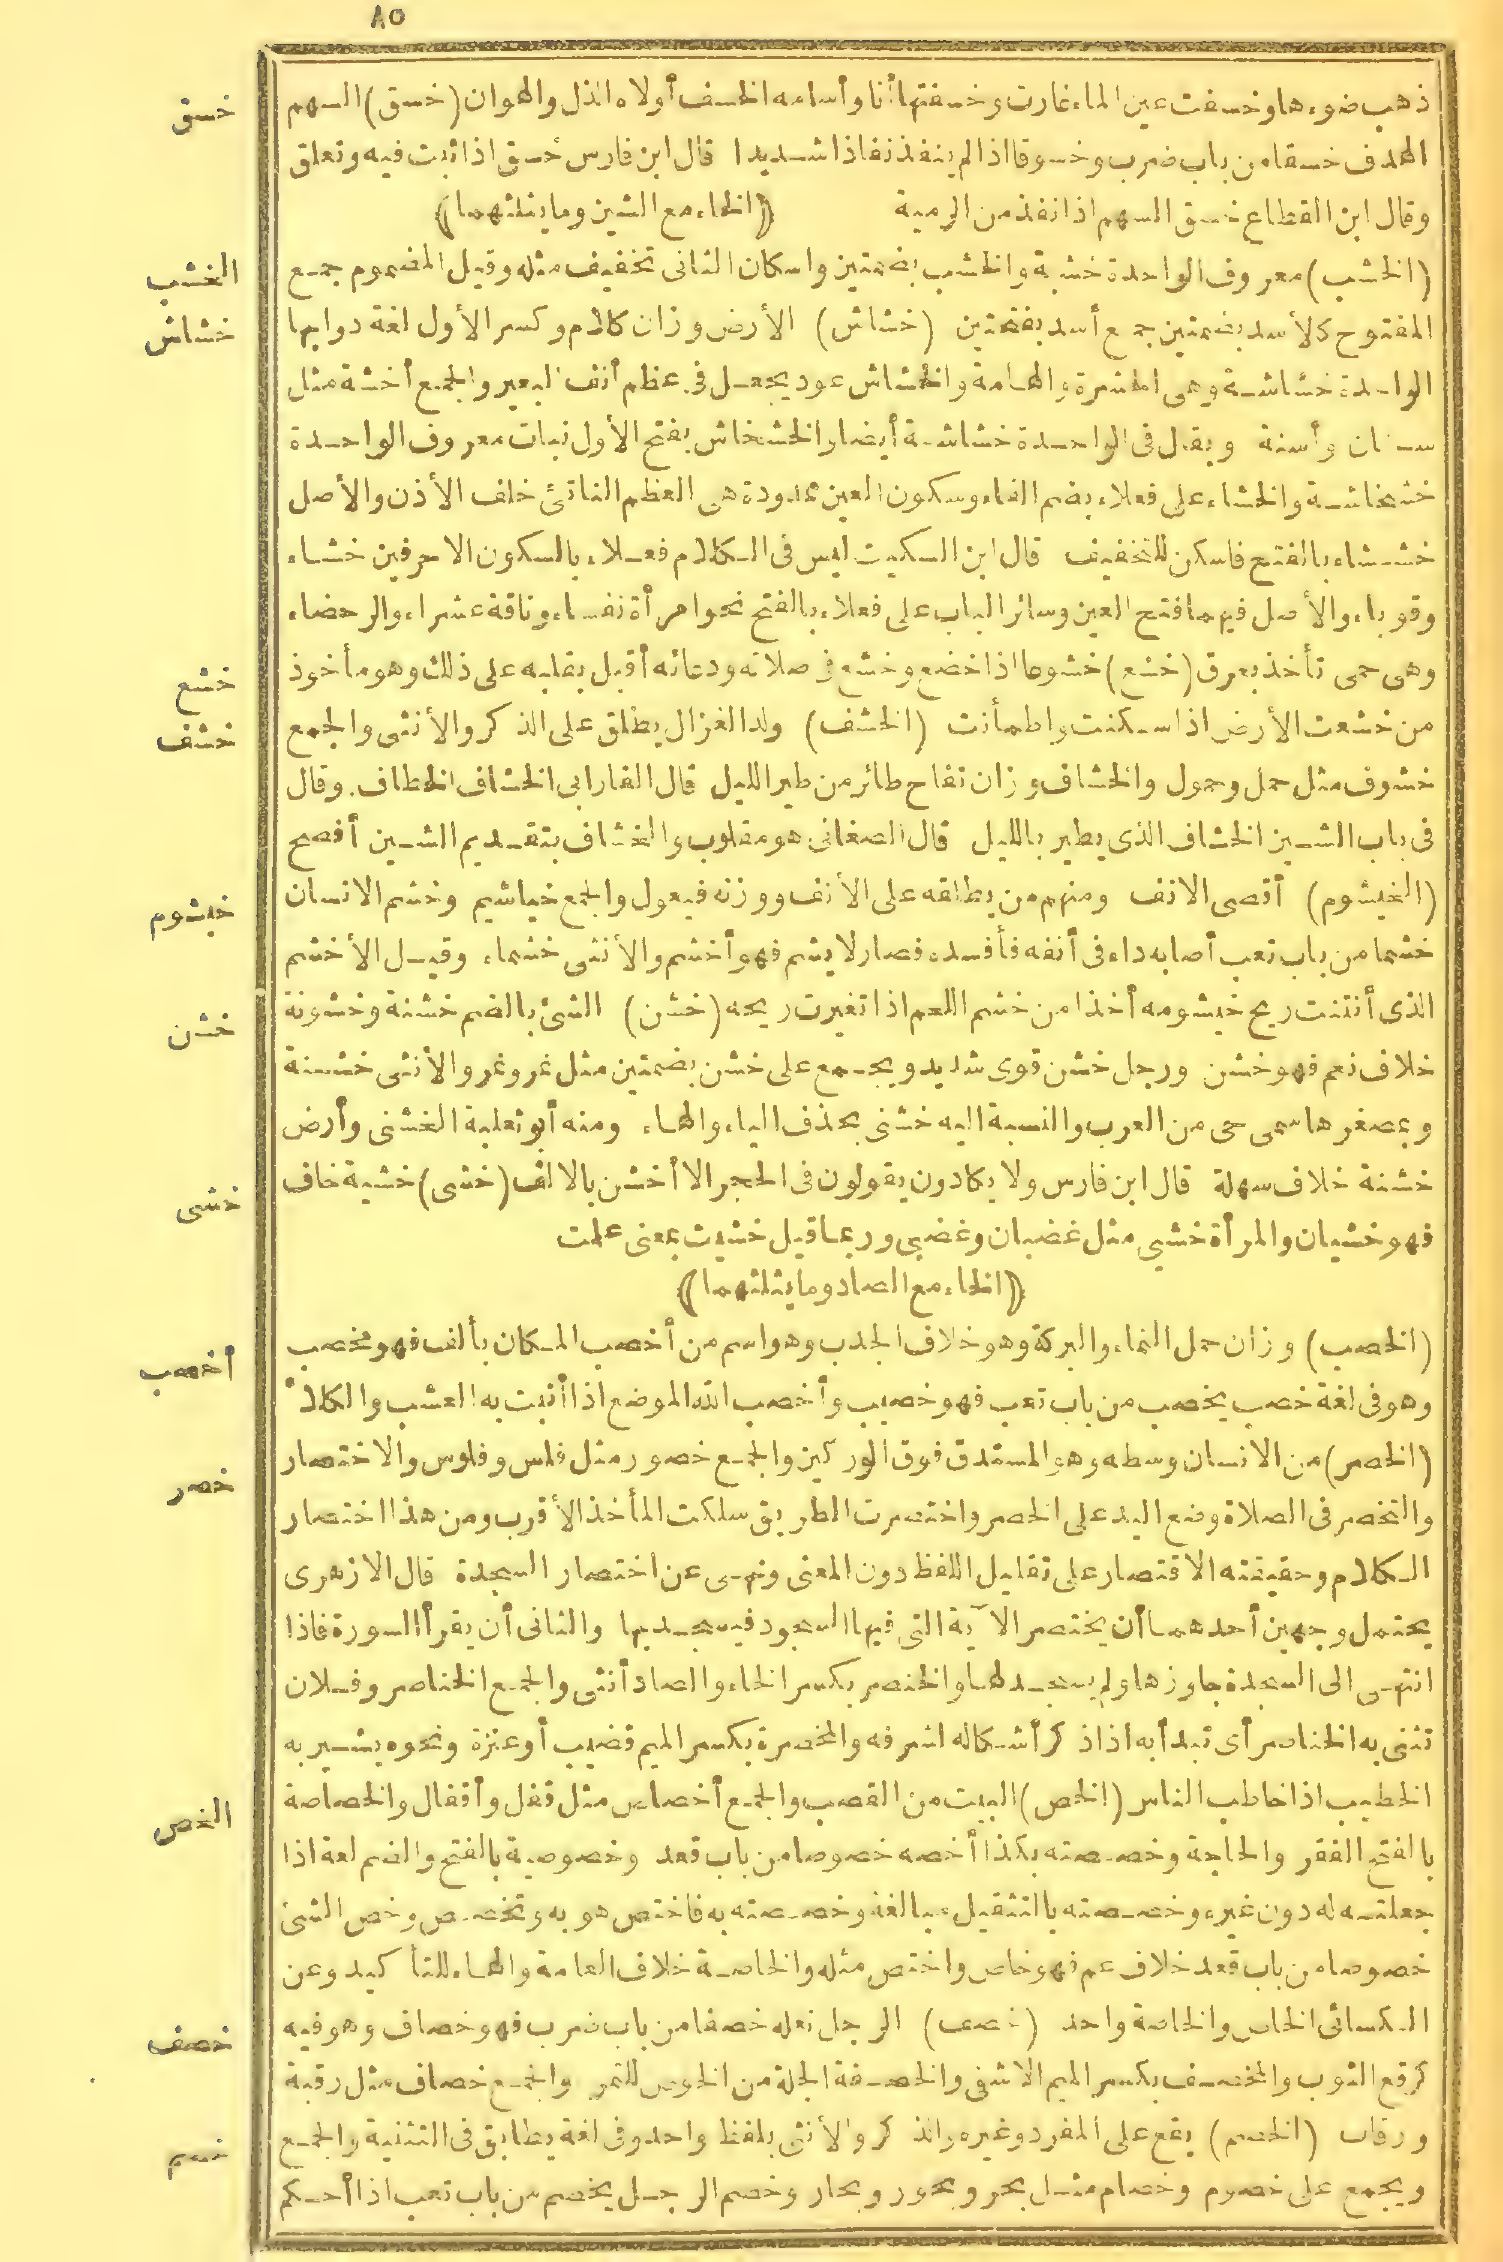 ٨٥
ذهب ضوءها وخسفت عين الماء غارت وخسفتها أنا وأسامه الخسف أولاه الذل والهوان (خسق) السهم
خسق
الهدف خسقا من باب ضرب وخسوقا اذا لم ينفذ نفاذا شديدا قال ابن فارس خسق اذا ثبت فيه وتعلق
وقال ابن القطاع خسق السهم اذا نفذ من الرمية ﴿الخاء مع الشين وما يثلثهما﴾
(الخشب) معروف الواحدة خشبة والخشب بضمتين واسكان الثانى تخفيف مثله وقيل المضموم جمع
الخشب
المفتوح كالأسد بضمتين جمع أسد بفتحتين (خشاش) الأرض وزان كلام وكسر الأول لغة دوابها
خشاش
الواحدة خشاشة وهى الحشرة والهامة والخشاش عود يجعل فى عظم أنف البعير والجمع أخشة مثل
سنان وأسنة ويقال فى الواحدة خشاشة أيضا والخشخاش بفتح الأول نبات معروف الواحدة
خشخاشة والخشاء على فعلاء بضم الفاء وسكون العين ممدودة هى العظم الناتئ خلف الأذن والأصل
خششاء بالفتح فاسكن للتخفيف قال ابن السكيت ليس فى الكلام فعلاء بالسكون الا حرفين خشاء
وقوباء والأصل فيهما فتح العين وسائر الباب على فعلاء بالفتح نحو امرأة نفساء وناقة عشراء والرحضاء
وهى حمى تأخذ بعرق (خشع) خشوعا اذا خضع وخشع فى صلاته ودعائه أقبل بقلبه على ذلك وهو مأخوذ
خشع
من خشعت الأرض اذا سكنت واطمأنت (الخشف) ولد الغزال يطلق على الذكر والأنثى والجمع
خشف
خشوف مثل حمل وحمول والخشاف وزان تفاح طائر من طير الليل قال الفارابى الخشاف الخطاف وقال
فى باب الشين الخشاف الذى يطير بالليل قال الصغانى هو مقلوب والخشاف بتقديم الشين أفصح
(الخيشوم) أقصى الانف ومنهم من يطلقه على الأنف ووزنه فيعول والجمع خياشيم وخشم الانسان
خيشوم
خشما من باب تعب أصابه داء فى أنفه فأفسده فصار لا يشم فهو أخشم والأنثى خشماء وقيل الأخشم
الذى أنتنت ريح خيشومه أخذا من خشم اللحم اذا تغيرت ريحه (خشن) الشئ بالضم خشنة وخشونة
خشن
خلاف نعم فهو خشن ورجل خشن قوى شديد ويجمع على خشن بضمتين مثل نمر ونمر والأنثى خشنة
وبمصغرها سمى حى من العرب والنسبة اليه خشنى بحذف الياء والهاء ومنه أبو ثعلبة الخشنى وأرض
خشنة خلاف سهلة قال ابن فارس ولا يكادون يقولون فى الحجر الا أخشن بالالف (خشى) خشية خاف
خشى
فهو خشيان والمرأة خشيى مثل غضبان وغضبى وربما قيل خشيت بمعنى علمت
﴿الخاء مع الصاد وما يثلثهما﴾
(الخصب) وزان حمل النماء والبركة وهو خلاف الجدب وهو اسم من أخصب المكان بألف فهو مخصب
أخصب
وهو فى لغة خصب يخصب من باب تعب فهو خصيب وأخصب الله الموضع اذا أنبت به العشب والكلأ
(الخصر) من الانسان وسطه وهو المستدق فوق الوركين والجمع خصور مثل فلس وفلوس والاختصار
خصر
والتخصر فى الصلاة وضع اليد على الخصر واختصرت الطريق سلكت المأخذ الأقرب ومن هذا اختصار
الكلام وحقيقته الاقتصار على تقليل اللفظ دون المعنى ونهى عن اختصار السجدة قال الازهرى
يحتمل وجهين أحدهما أن يختصر الآية التى فيها السجود فيسجد بها والثانى أن يقرأ السورة فاذا
انتهى الى السجدة جاوزها ولم يسجد لها والخنصر بكسر الخاء والصاد أنثى والجمع الخناصر وفلان
تثنى به الخناصر أى تبدأ به اذا ذكر أشكاله لشرفه والمخصرة بكسر الميم قضيب أو عنزة ونحوه يشير به
الخطيب اذا خاطب الناس (الخص) البيت من القصب والجمع أخصاص مثل قفل وأقفال والخصاصة
الخص
بالفتح الفقر والحاجة وخصصته بكذا أخصه خصوصا من باب قعد وخصوصية بالفتح والضم لغة اذا
جعلته له دون غيره وخصصته بالتثقيل مبالغة وخصصته به فاختص هو به وتخصص وخص الشئ
خصوصا من باب قعد خلاف عم فهو خاص واختص مثله والخاصة خلاف العامة والهاء للتأكيد وعن
الكسائى الخاص والخاصة واحد (خصف) الرجل نعله خصفا من باب ضرب فهو خصاف وهو فيه
خصف
كرقع الثوب والمخصف بكسر الميم الاشفى والخصفة الجلة من الخوص للتمر والجمع خصاف مثل رقبة
ورقاب (الخصم) يقع على المفرد وغيره والذكر والأنثى بلفظ واحد وفى لغة يطابق فى التثنية والجمع
خصم
ويجمع على خصوم وخصام مثل بحر وبحور وبحار وخصم الرجل يخصم من باب تعب اذا أحكم